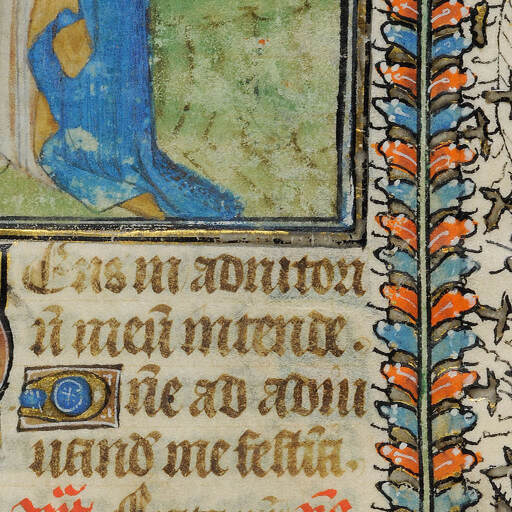 Eus in adiutori
ū meū intende.
One ad adiu
uand' me festīa.